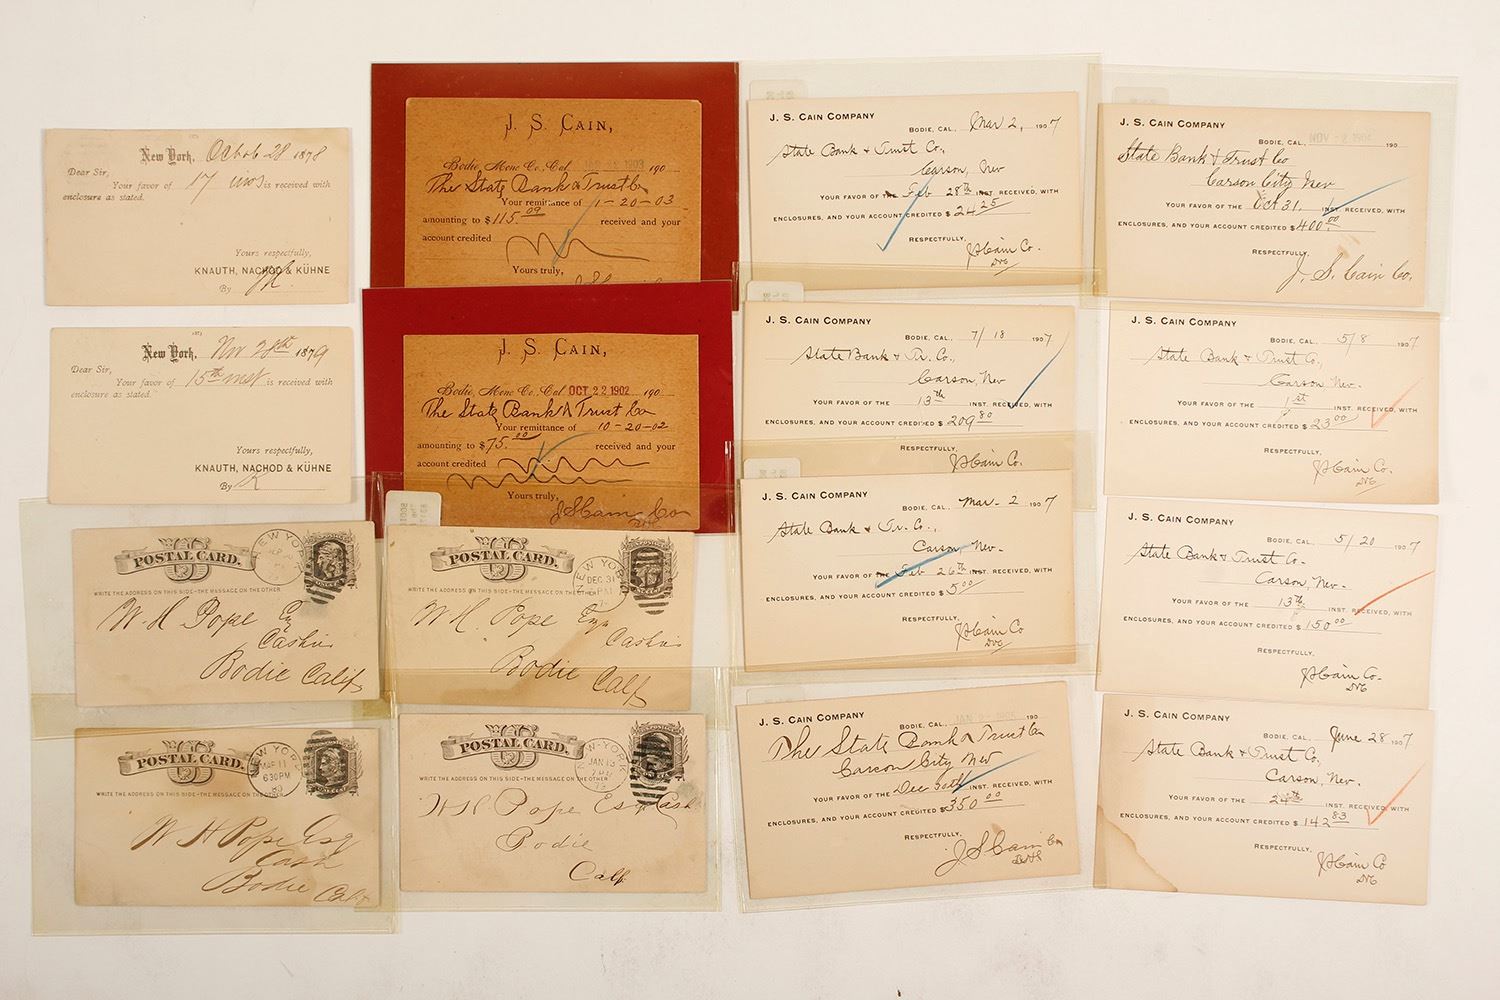 New York, 28 1878
Dear Sir,
Your favor of 17 is received with
enclosure as stated.
Yours respectfully,
KNAUTH, NACHOD & KÜHNE
By
New York, Nov 28th 1879
Dear Sir,
Your favor of 15th inst is received with
enclosure as stated.
Yours respectfully,
KNAUTH, NACHOD & KÜHNE
By K
POSTAL CARD.
WRITE THE ADDRESS ON THIS SIDE-THE MESSAGE ON THE OTHER
NEW YORK
W. H. Pope Esq
Cashier
Bodie Calif
POSTAL CARD.
WRITE THE ADDRESS ON THIS SIDE-THE MESSAGE ON THE OTHER
NEW YORK
MAR 11
630PM
80
W H Pope Esq
Cash
Bodie
Calf
J. S. CAIN,
Bodie, Mono Co., Cal 22 1903 190
The State Bank & Trust Co
Your remittance of 1-20-03
amounting to $115.09 received and your
account credited
Yours truly,
J. S. CAIN,
Bodie, Mono Co., Cal OCT 22 1902 190
The State Bank & Trust Co
Your remittance of 10-20-02
amounting to $75.00 received and your
account credited
Yours truly,
J S Cain Co
POSTAL CARD.
WRITE THE ADDRESS ON THIS SIDE-THE MESSAGE ON THE OTHER
NEW YORK
DEC 31
PM
W. H. Pope Esq
Cashier
Bodie
Calf
POSTAL CARD.
WRITE THE ADDRESS ON THIS SIDE-THE MESSAGE ON THE OTHER
NEW-YORK
JAN 13
W H Pope Esq Cash
Bodie
Calf.
J. S. CAIN COMPANY
BODIE, CAL., Mar 2, 1907
State Bank & Trust Co.,
Carson, Nev
YOUR FAVOR OF THE Feb 28th INST. RECEIVED, WITH
ENCLOSURES, AND YOUR ACCOUNT CREDITED $ 24 25
RESPECTFULLY,
J S Cain Co.
J. S. CAIN COMPANY
BODIE, CAL., 7/18 1907
State Bank & Tr. Co.,
Carson, Nev
YOUR FAVOR OF THE 13th INST. RECEIVED, WITH
ENCLOSURES, AND YOUR ACCOUNT CREDITED $ 209 80
RESPECTFULLY,
J S Cain Co.
J. S. CAIN COMPANY
BODIE, CAL., Mar - 2 1907
State Bank & Tr. Co.,
Carson, Nev.
YOUR FAVOR OF THE Feb 26th INST. RECEIVED, WITH
ENCLOSURES, AND YOUR ACCOUNT CREDITED $ 5 00
RESPECTFULLY,
J S Cain Co
J. S. CAIN COMPANY
BODIE, CAL., JAN 190
The State Bank & Trust Co
Carson City Nev
YOUR FAVOR OF THE Dec INST. RECEIVED, WITH
ENCLOSURES, AND YOUR ACCOUNT CREDITED $ 350 00
RESPECTFULLY,
J S Cain Co
J. S. CAIN COMPANY
BODIE, CAL., NOV - 2 1904 190
State Bank & Trust Co
Carson City Nev
YOUR FAVOR OF THE Oct 31. INST. RECEIVED, WITH
ENCLOSURES, AND YOUR ACCOUNT CREDITED $ 400.00
RESPECTFULLY,
J. S. Cain Co.
J. S. CAIN COMPANY
BODIE, CAL., 5/8 1907
State Bank & Trust Co,
Carson Nev.
YOUR FAVOR OF THE 1st INST. RECEIVED, WITH
ENCLOSURES, AND YOUR ACCOUNT CREDITED $ 23 00
RESPECTFULLY,
J S Cain Co.
J. S. CAIN COMPANY
BODIE, CAL., 5/20 1907
State Bank & Trust Co.
Carson, Nev.
YOUR FAVOR OF THE 13th INST. RECEIVED, WITH
ENCLOSURES, AND YOUR ACCOUNT CREDITED $ 150 00
RESPECTFULLY,
J S Cain Co.
J. S. CAIN COMPANY
BODIE, CAL., June 28, 1907
State Bank & Trust Co,
Carson, Nev.
YOUR FAVOR OF THE 24th INST. RECEIVED, WITH
ENCLOSURES, AND YOUR ACCOUNT CREDITED $ 142 83
RESPECTFULLY,
J S Cain Co